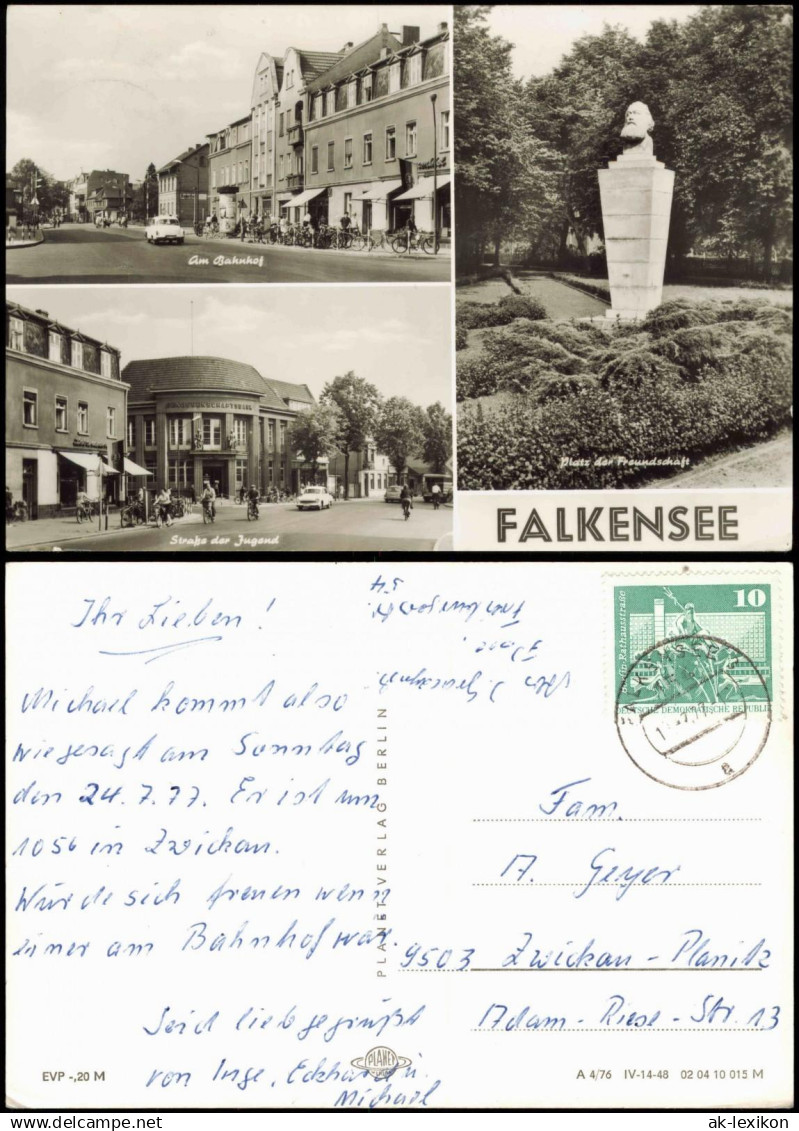 Am Bahnhof
Straße der Jugend
Platz der Freundschaft
FALKENSEE
Ihr Lieben!
Michael kommt also
wie gesagt am Sonntag
den 24.7.77. Er ist um
1056 in Zwickau.
Würde sich freuen wenn
einer am Bahnhof war.
Seid lieb gegrüßt
von Inge, Eckhard u.
Michael
EVP -,20 M
PLANET-VERLAG BERLIN
PLANET
54
10
Berlin · Rathausstraße
DEUTSCHE DEMOKRATISCHE REPUBLIK
FALKENSEE
a
Fam.
A. Geyer
9503 Zwickau-Planitz
Adam-Riese-Str. 13
A 4/76 IV-14-48 02 04 10 015 M
www.delcampe.net
ak-lexikon